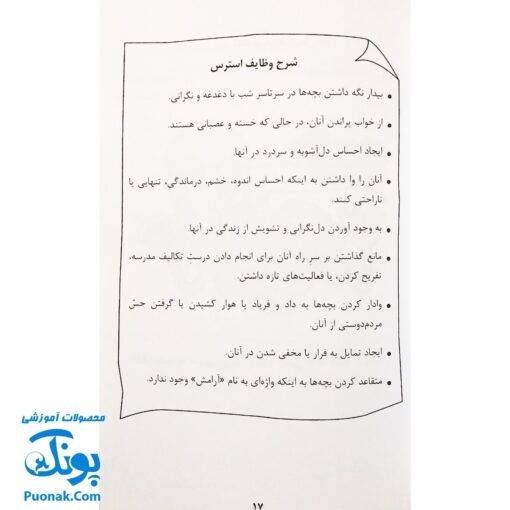 شرح وظایف استرس
• بیدار نگه داشتن بچه‌ها در سرتاسر شب با دغدغه و نگرانی.
• از خواب پراندن آنان، در حالی که خسته و عصبانی هستند.
• ایجاد احساس دل‌آشوبه و سردرد در آنها.
• آنان را وا داشتن به اینکه احساس اندوه، خشم، درماندگی، تنهایی یا
ناراحتی کنند.
• به وجود آوردن دل‌نگرانی و تشویش از زندگی در آنها.
• مانع گذاشتن بر سر راه آنان برای انجام دادن درستِ تکالیف مدرسه،
تفریح کردن، یا فعالیت‌های تازه داشتن.
• وادار کردن بچه‌ها به داد و فریاد یا هوار کشیدن یا گرفتن حسّ
مردم‌دوستی از آنان.
• ایجاد تمایل به فرار یا مخفی شدن در آنان.
• متقاعد کردن بچه‌ها به اینکه واژه‌ای به نام «آرامش» وجود ندارد.
محصولات آموزشی
پونک
Puonak.Com
۱۷